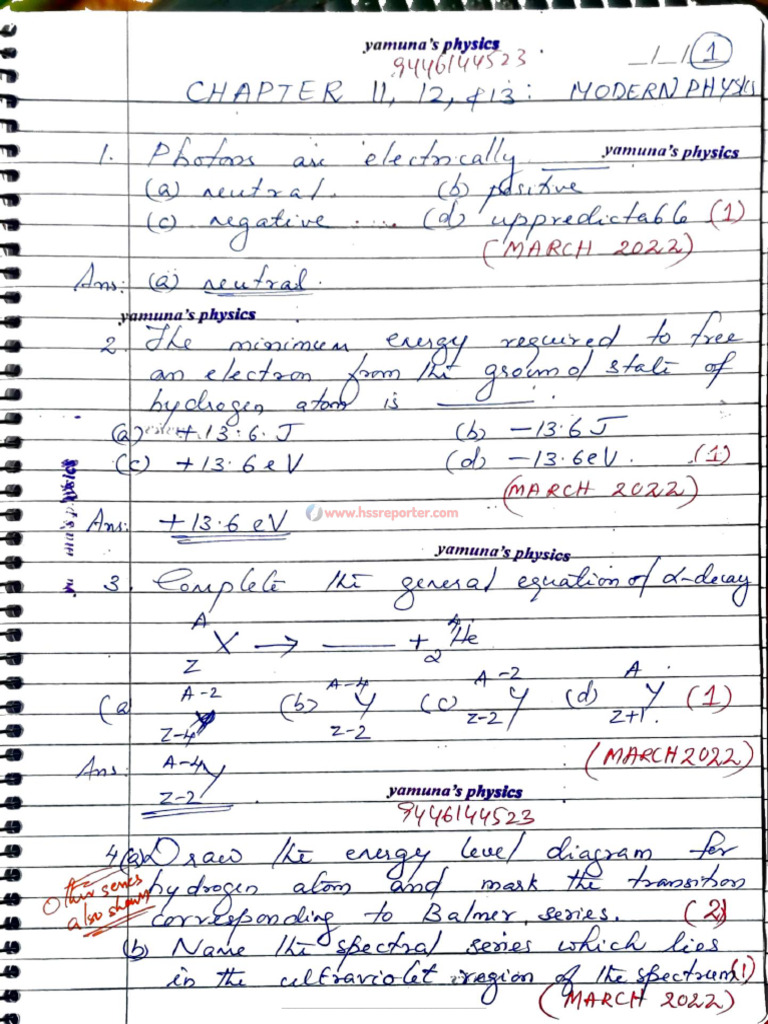 yamuna's physics
9446144523
_/_/ 1
CHAPTER 11, 12, &13: MODERN PHYSICS
1. Photons are electrically ____ yamuna's physics
(a) neutral. (b) positive
(c) negative .... (d) uppredictable (1)
(MARCH 2022)
Ans: (a) neutral.
yamuna's physics
2. The minimum energy required to free
an electron from the ground state of
hydrogen atom is ____.
(a) +13.6 J (b) -13.6 J
(c) +13.6 eV (d) -13.6 eV. (1)
(MARCH 2022)
www.hssreporter.com
Ans: +13.6 eV
yamuna's physics
3. Complete the general equation of α-decay
A
Z X → ____ + 4 2 He
(a A-2 Z-4 Y (b) A-4 Z-2 Y (c) A-2 Z-2 Y (d) A Z+1 Y. (1)
(MARCH 2022)
Ans: A-4 Z-2 Y
yamuna's physics
9446144523
4(a) Draw the energy level diagram for
hydrogen atom and mark the transition
corresponding to Balmer series. (2)
Other series
also shown
(b) Name the spectral series which lies
in the ultraviolet region of the spectrum (1)
(MARCH 2022)